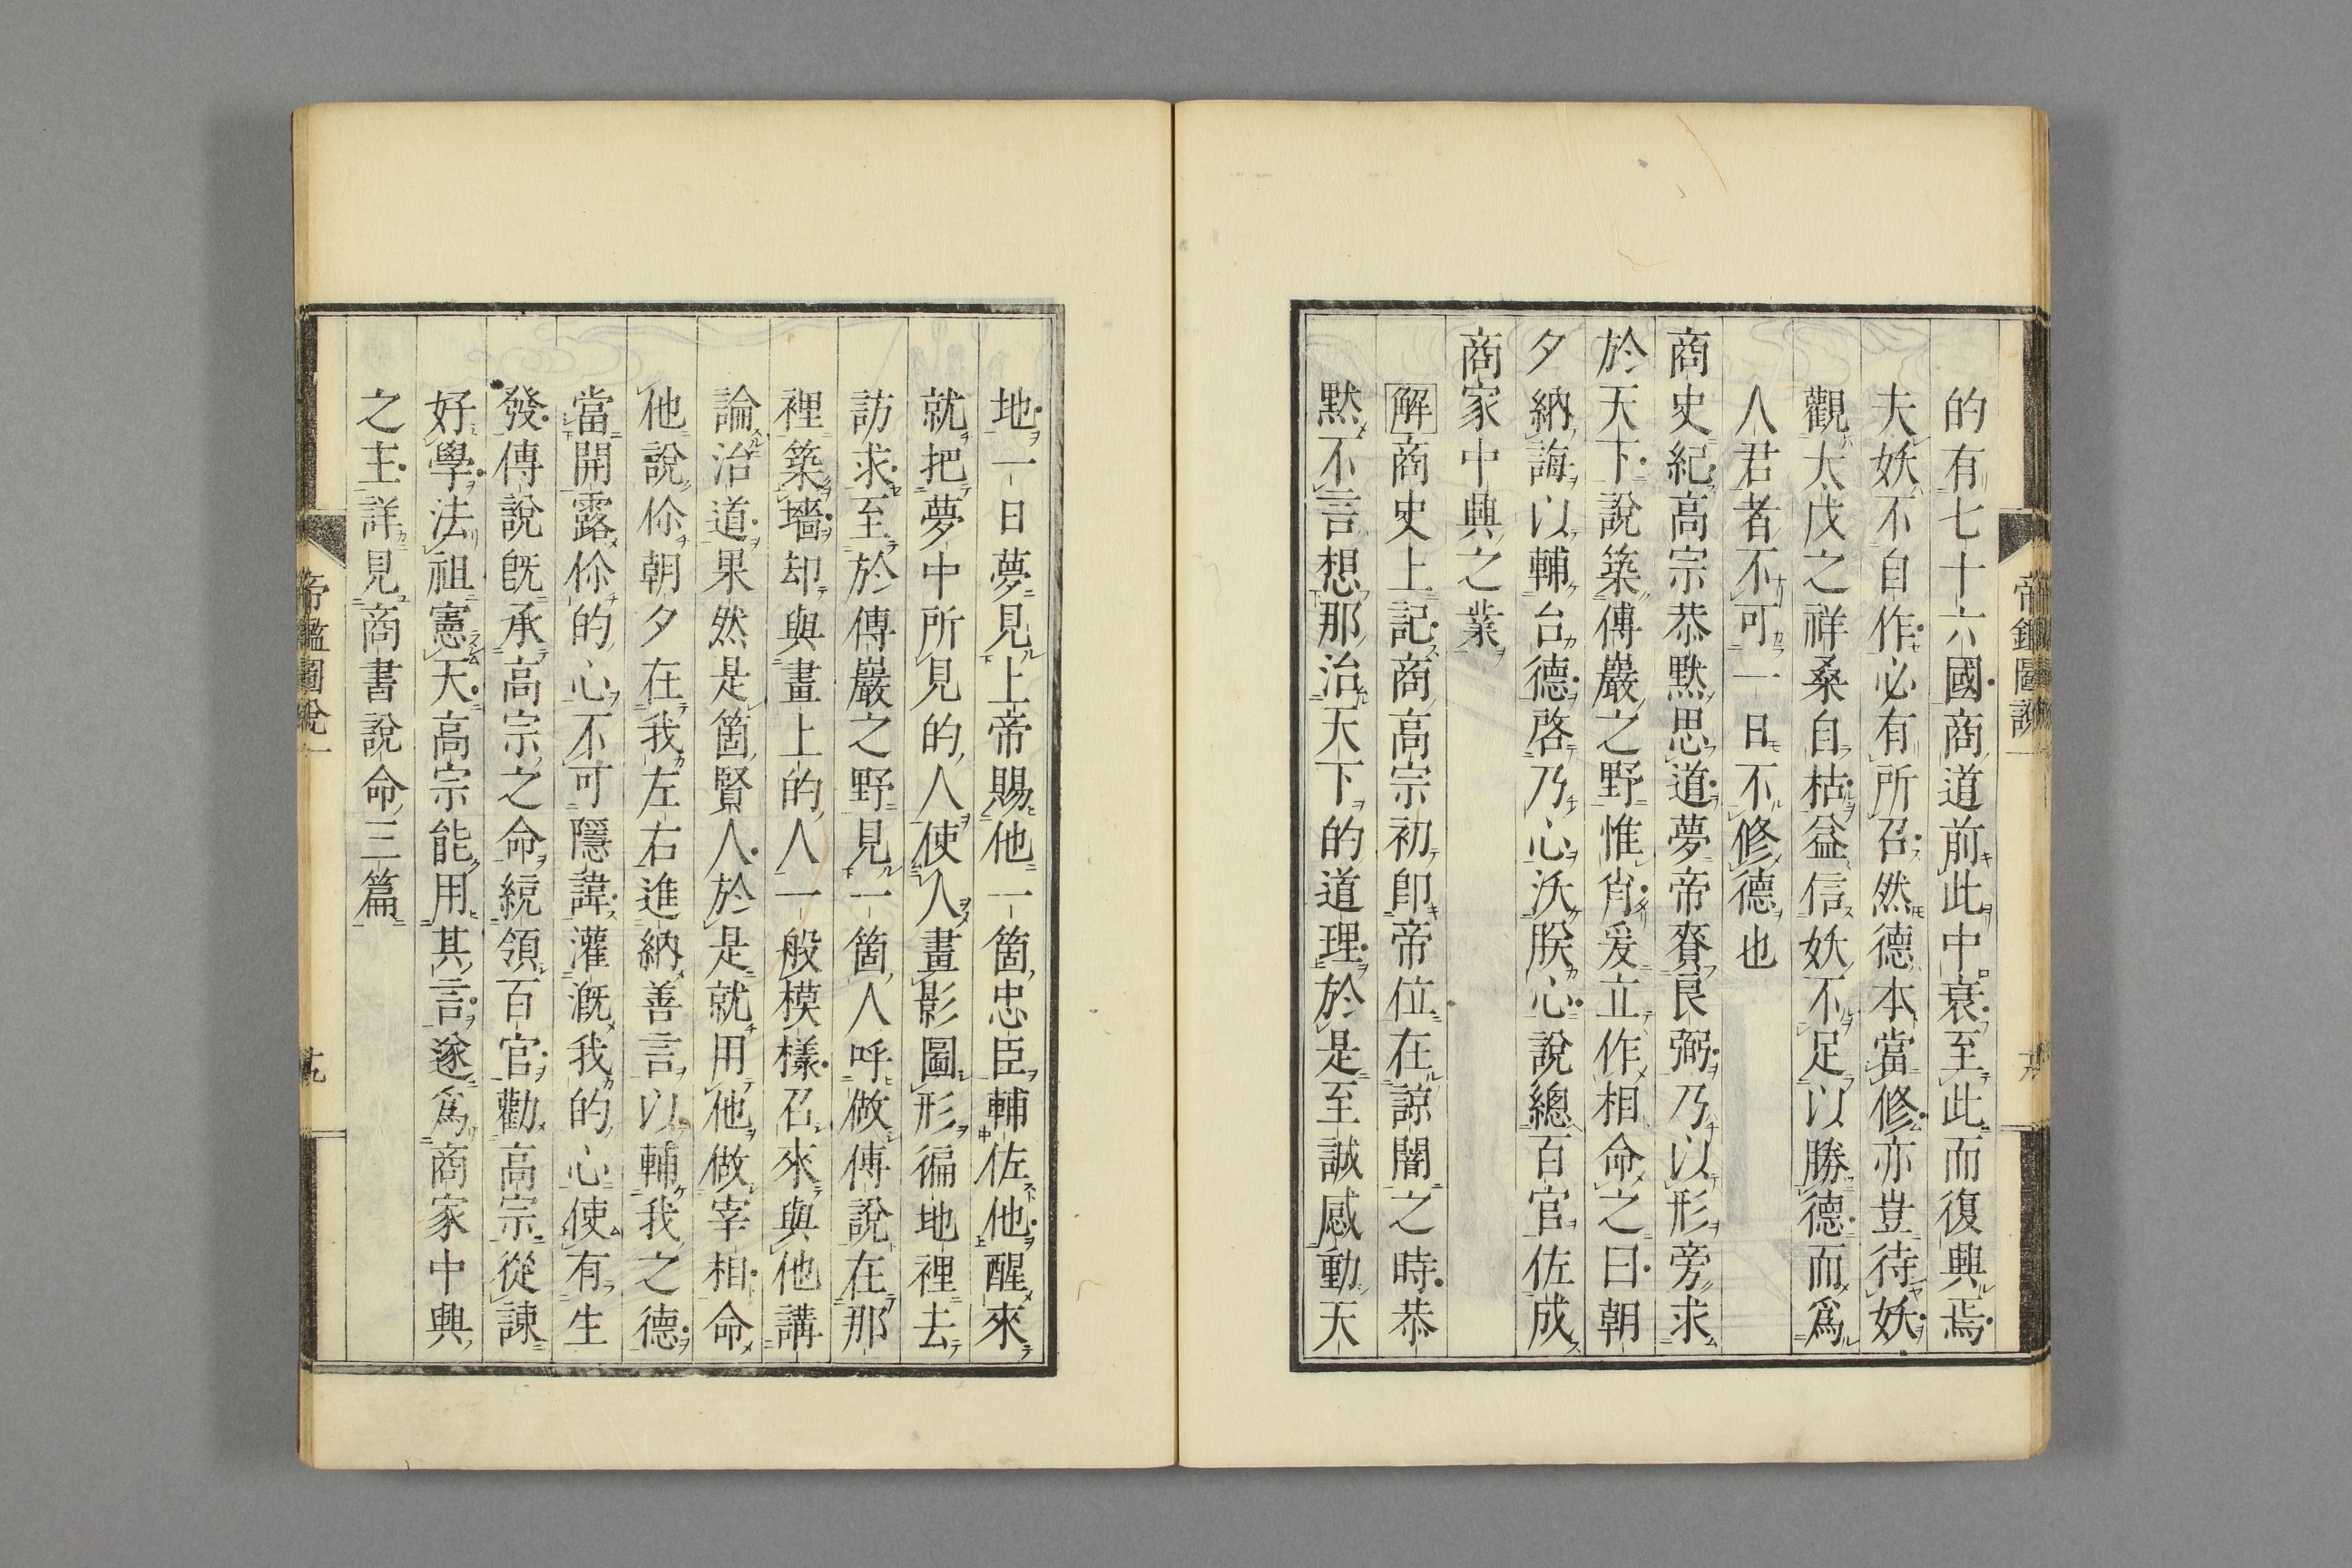 的有七十六國商道前此中衰至此而復興焉
夫妖不自作必有所召然德本當修亦豈待妖
觀太戊之祥桑自枯益信妖不足以勝德而爲
人君者不可一日不修德也
商史紀高宗恭默思道夢帝賚良弼乃以形旁求
於天下說築傅巖之野惟肖爰立作相命之曰朝
夕納誨以輔台德啓乃心沃朕心說總百官佐成
商家中興之業
解商史上記商高宗初卽帝位在諒闇之時恭
默不言想那治天下的道理於是至誠感動天
地一日夢見上帝賜他一箇忠臣輔佐他醒來
就把夢中所見的人使人畫影圖形徧地裡去
訪求至於傅巖之野見一箇人呼做傅說在那
裡築墻却與畫上的人一般模樣召來與他講
論治道果然是箇賢人於是就用他做宰相命
他說伱朝夕在我左右進納善言以輔我之德
當開露伱的心不可隱諱灌漑我的心使有生
發傅說旣承高宗之命統領百官勸高宗從諫
好學法祖憲天高宗能用其言遂爲商家中興
之主詳見商書說命三篇
帝鑑圖說一